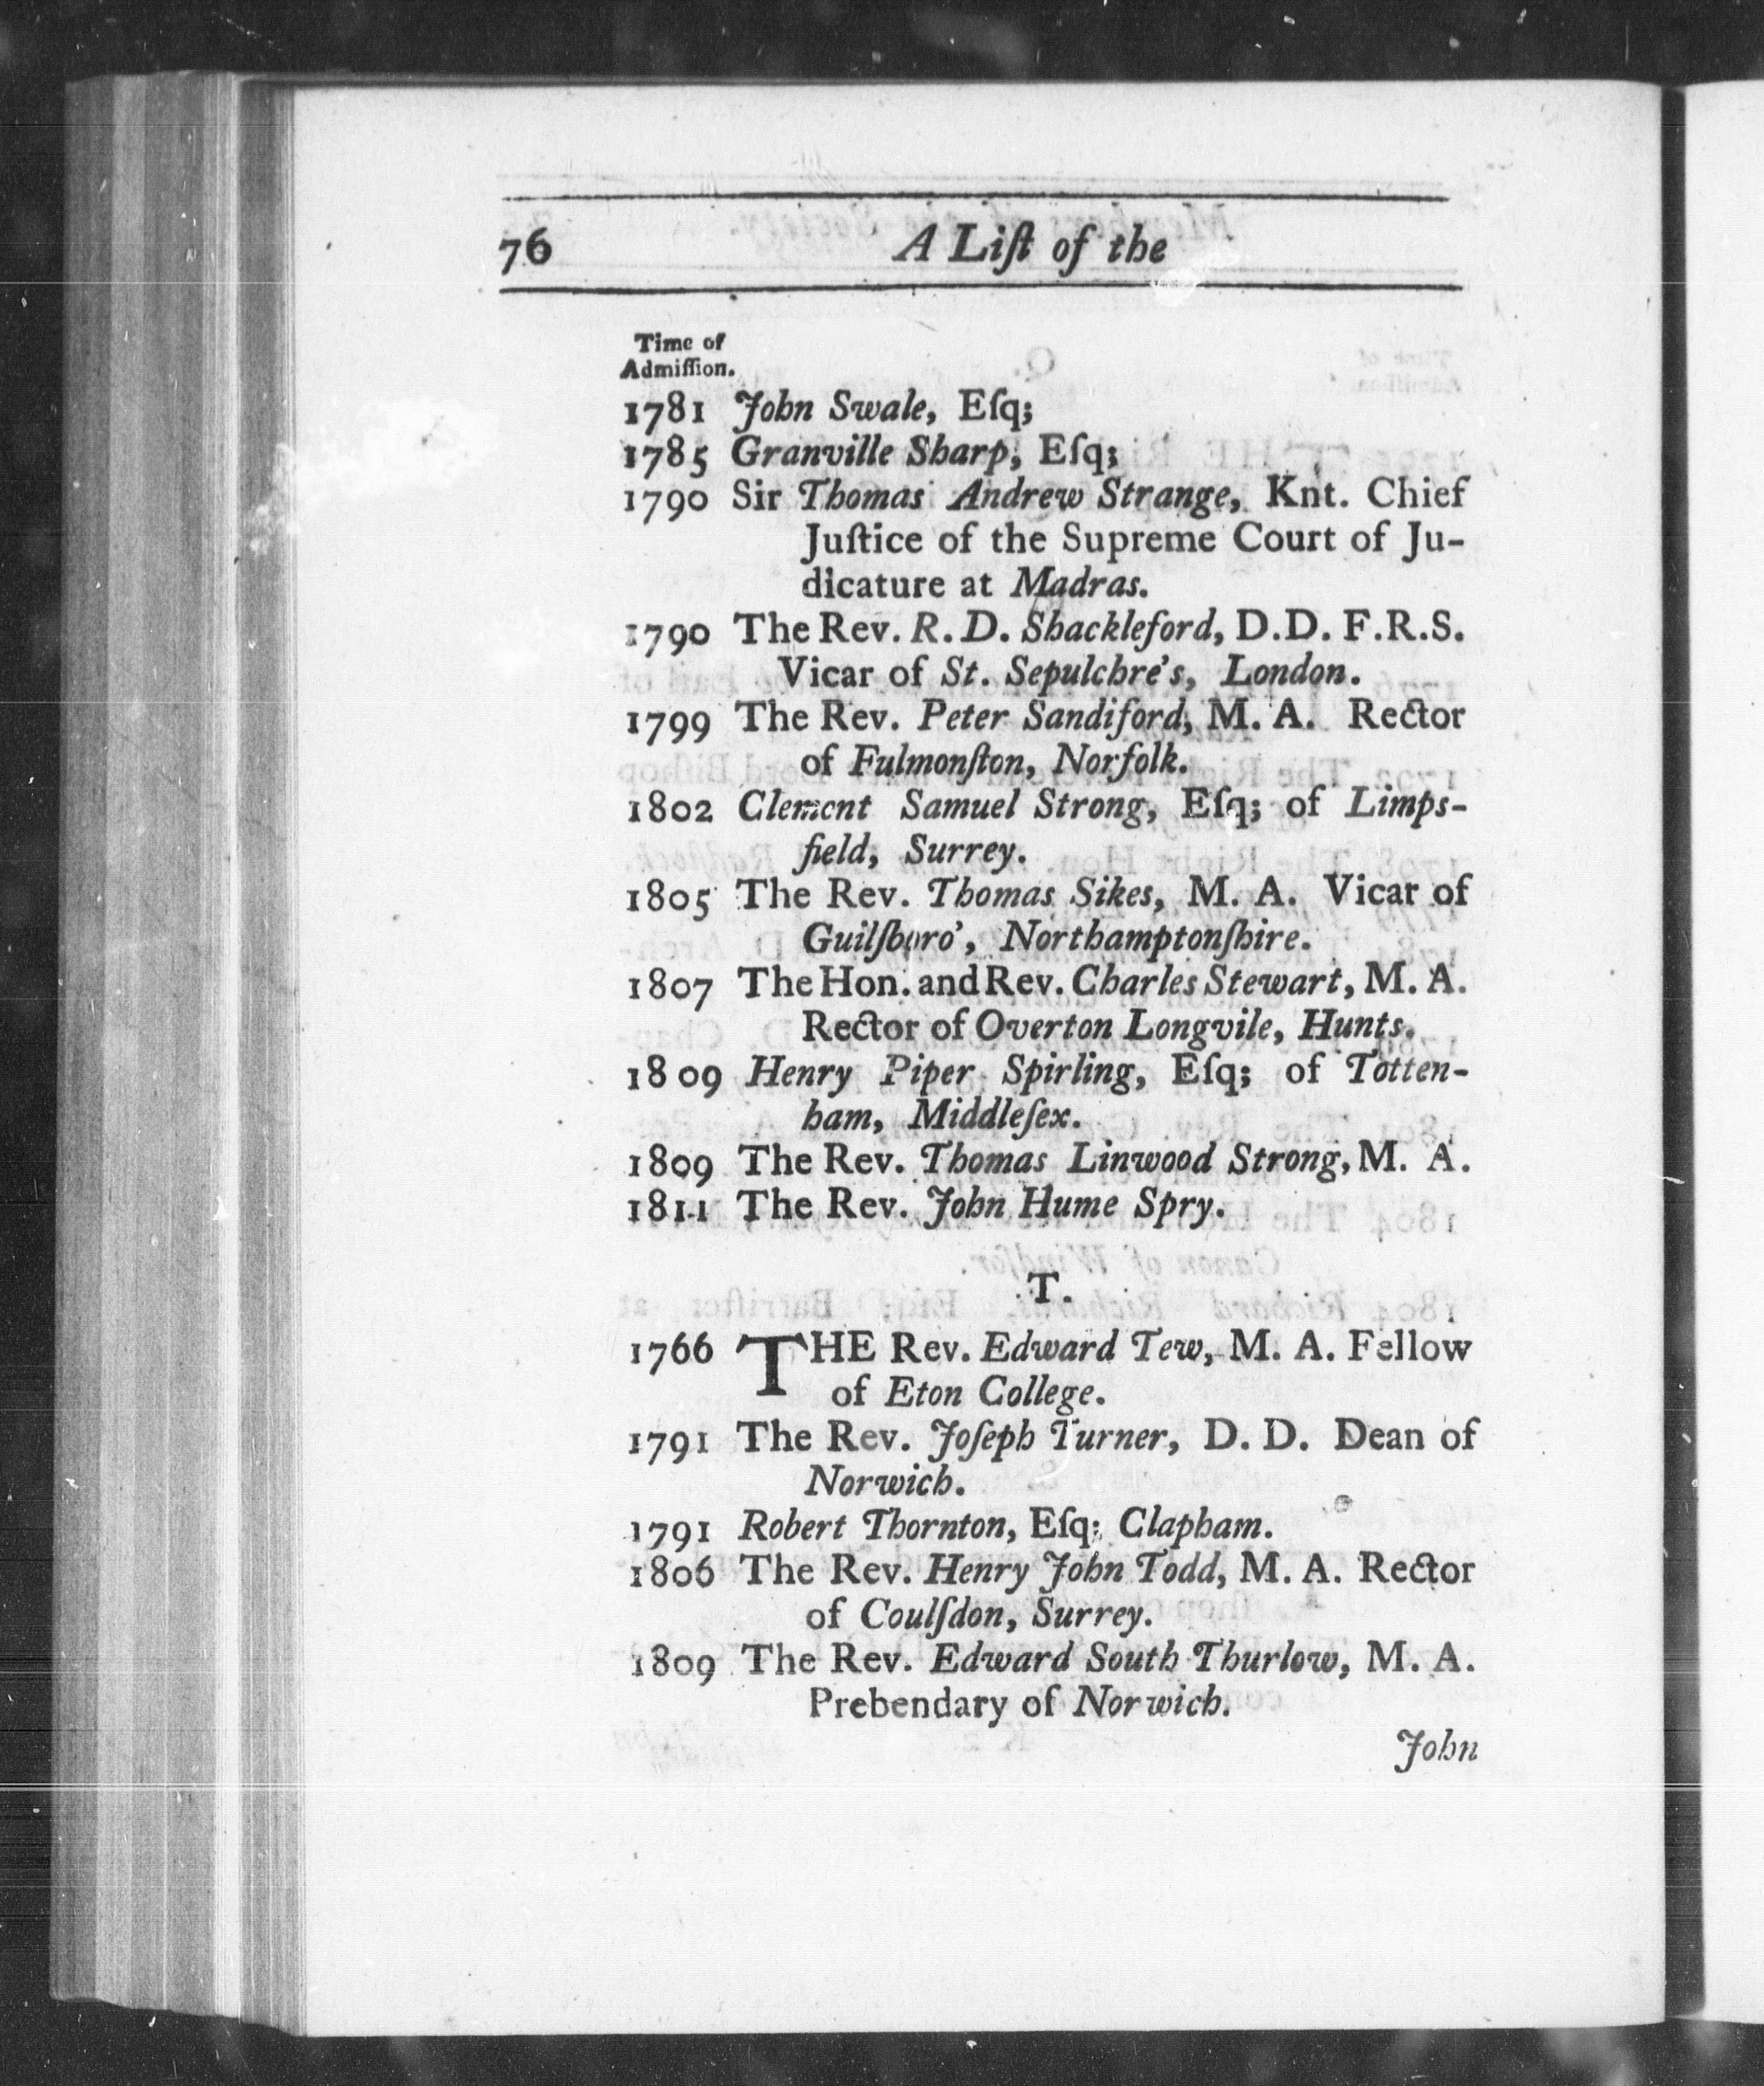 76 A Liſt of the
Time of
Admiſſion.
1781 John Swale, Eſq;
1785 Granville Sharp, Eſq;
1790 Sir Thomas Andrew Strange, Knt. Chief
Juſtice of the Supreme Court of Ju-
dicature at Madras.
1790 The Rev. R. D. Shackleford, D.D. F.R.S.
Vicar of St. Sepulchre's, London.
1799 The Rev. Peter Sandiford, M. A. Rector
of Fulmonſton, Norfolk.
1802 Clement Samuel Strong, Eſq; of Limps-
field, Surrey.
1805 The Rev. Thomas Sikes, M. A. Vicar of
Guilſboro', Northamptonſhire.
1807 The Hon. and Rev. Charles Stewart, M. A.
Rector of Overton Longvile, Hunts.
1809 Henry Piper Spirling, Eſq; of Totten-
ham, Middleſex.
1809 The Rev. Thomas Linwood Strong, M. A.
1811 The Rev. John Hume Spry.
T.
1766 THE Rev. Edward Tew, M. A. Fellow
of Eton College.
1791 The Rev. Joſeph Turner, D. D. Dean of
Norwich.
1791 Robert Thornton, Eſq; Clapham.
1806 The Rev. Henry John Todd, M. A. Rector
of Coulſdon, Surrey.
1809 The Rev. Edward South Thurlow, M. A.
Prebendary of Norwich.
John